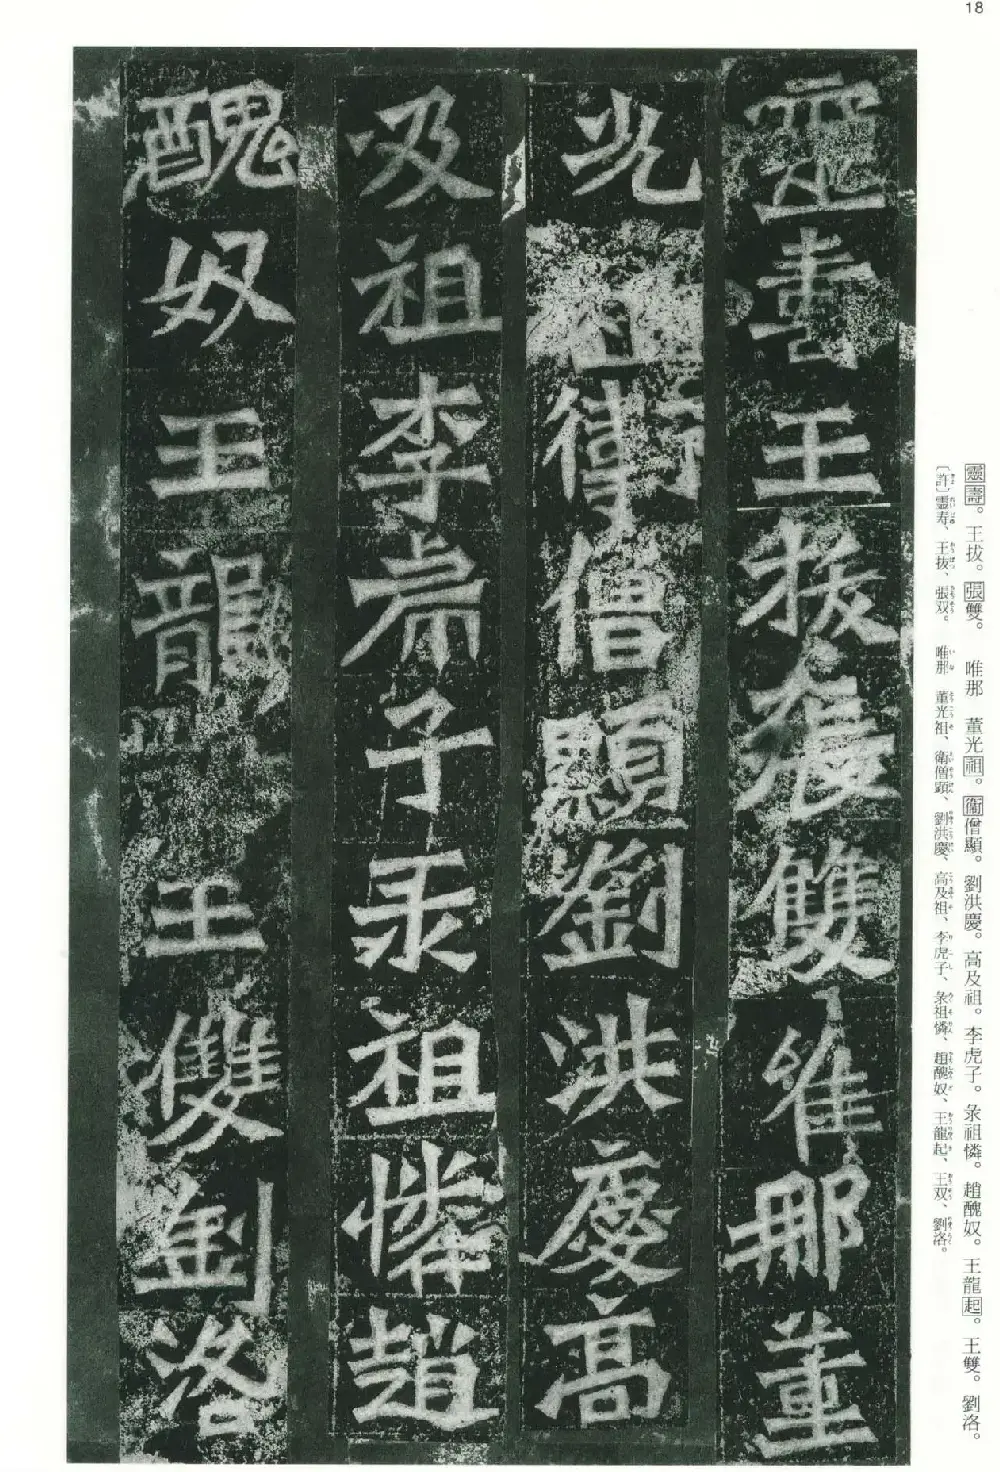 18
靈壽王拔張雙唯那董
光祖衛僧顯劉洪慶高
及祖李虎子汞祖憐趙
醜奴王龍起王雙劉洛
靈壽。王拔。張雙。 唯那 董光祖。衛僧顯。劉洪慶。高及祖。李虎子。汞祖憐。趙醜奴。王龍起。王雙。劉洛。
〔許〕靈寿、王抜、張双。 唯那 董光祖、衛僧顕、劉洪慶、高及祖、李虎子、汞祖憐、趙醜奴、王龍起、王双、劉洛。